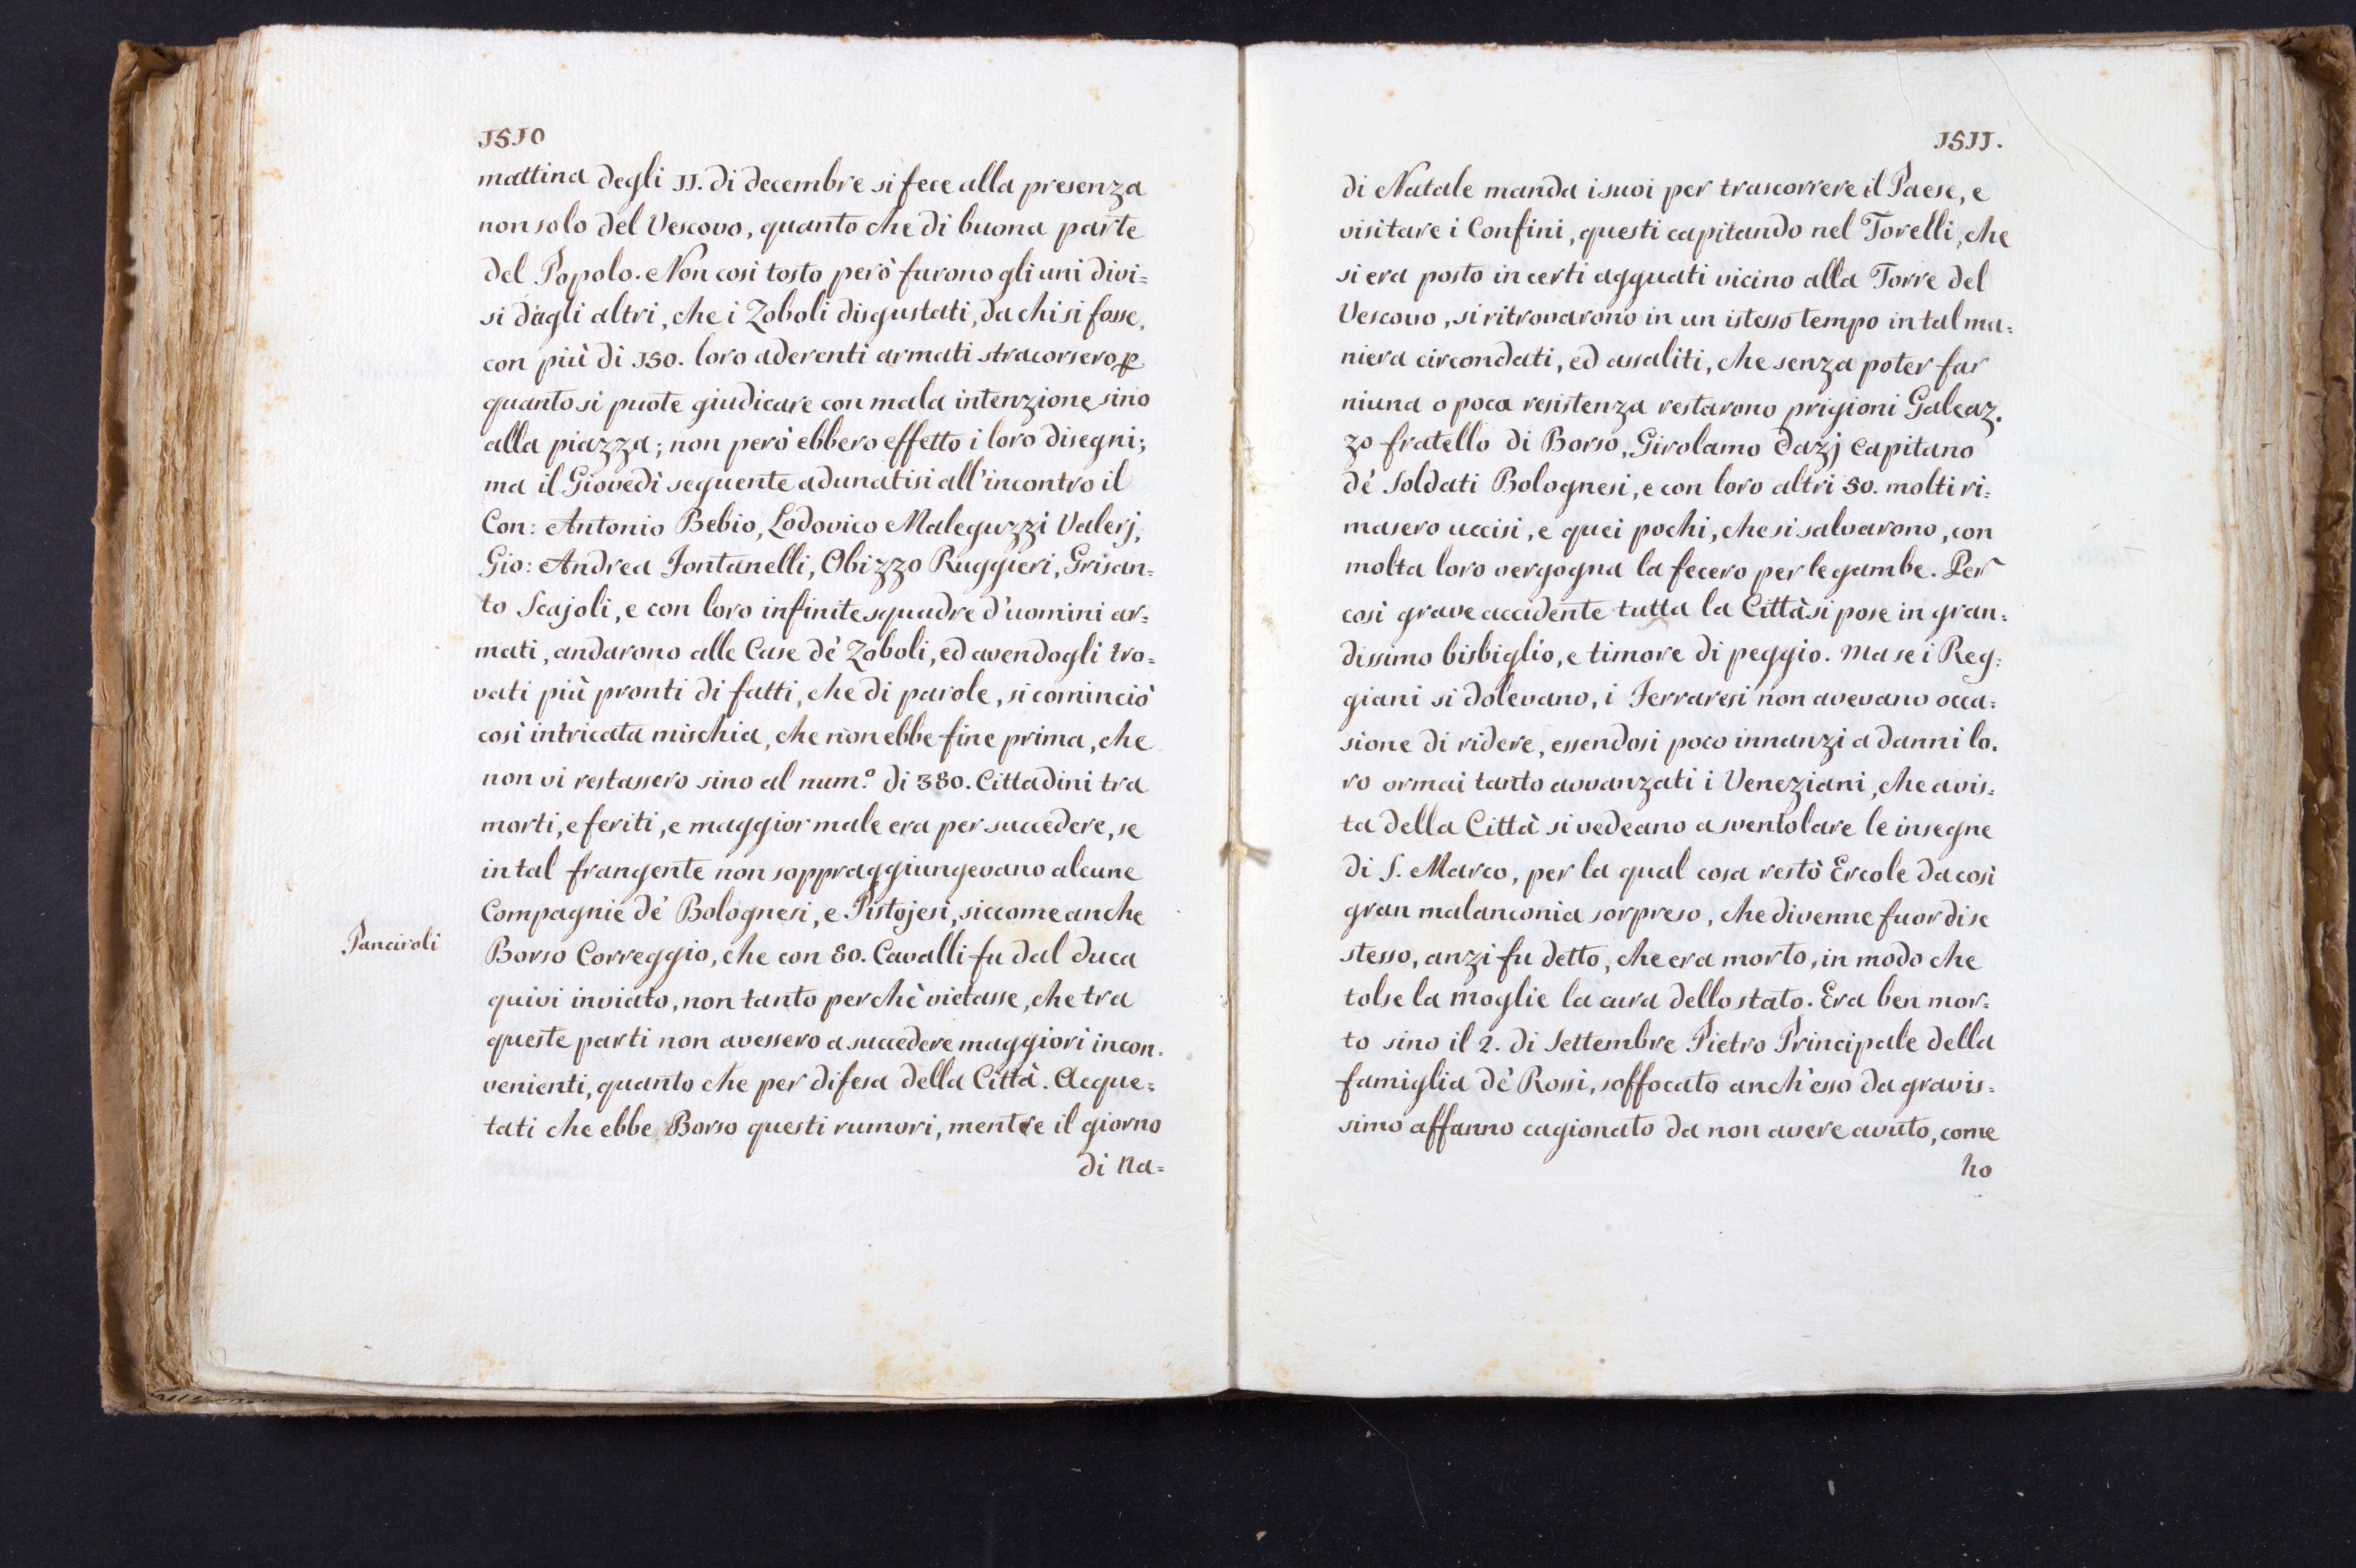 1510
mattina degli 11. di decembre si fece alla presenza
non solo del Vescovo, quanto che di buona parte
del Popolo. Non così tosto però furono gli uni divi=
si dagli altri, che i Zoboli disgustati, da chi si fosse,
con più di 150. loro aderenti armati stracorsero ꝑ
quanto si puote giudicare con mala intenzione sino
alla piazza; non però ebbero effetto i loro disegni;
ma il Giovedì seguente adunatisi all'incontro il
Con: Antonio Bebio, Lodovico Maleguzzi Valerj,
Gio: Andrea Fontanelli, Obizzo Ruggieri, Grisan=
to Scajoli, e con loro infinite squadre d'uomini ar=
mati, andarono alle Case dè Zoboli, ed avendogli tro=
vati più pronti di fatti, che di parole, si cominciò
così intricata mischia, che non ebbe fine prima, che
non vi restassero sino al num.º di 380. Cittadini tra
morti, e feriti, e maggior male era per succedere, se
in tal frangente non soppraggiungevano alcune
Compagnie dè Bolognesi, e Pistojesi, siccome anche
Panciroli
Borso Correggio, che con 80. Cavalli fu dal duca
quivi inviato, non tanto perchè vietasse, che tra
queste parti non avessero a succedere maggiori incon=
venienti, quanto che per difesa della Città. Acque=
tati che ebbe Borso questi rumori, mentre il giorno
di Na=
1511.
di Natale manda i suoi per trascorrere il Paese, e
visitare i Confini, questi capitando nel Torelli, che
si era posto in certi agguati vicino alla Torre del
Vescovo, si ritrovarono in un istesso tempo in tal ma=
niera circondati, ed assaliti, che senza poter far
niuna o poca resistenza restarono prigioni Galeaz.
zo fratello di Borso, Girolamo dazj Capitano
dè Soldati Bolognesi, e con loro altri 50. molti ri=
masero uccisi, e quei pochi, che si salvarono, con
molta loro vergogna la fecero per le gambe. Per
così grave accidente tutta la Città si pose in gran=
dissimo bisbiglio, e timore di peggio. Ma se i Reg=
giani si dolevano, i Ferraresi non avevano occa=
sione di ridere, essendosi poco innanzi a danni lo.
ro ormai tanto avvanzati i Veneziani, che a vis=
ta della Città si vedeano a sventolare le insegne
di S. Marco, per la qual cosa restò Ercole da così
gran malanconia sorpreso, che divenne fuor di se
stesso, anzi fu detto, che era morto, in modo che
tolse la moglie la cura dello stato. Era ben mor=
to sino il 2. di Settembre Pietro Principale della
famiglia dè Rossi, soffocato anch'esso da gravis=
simo affanno cagionato da non avere avuto, come
ho